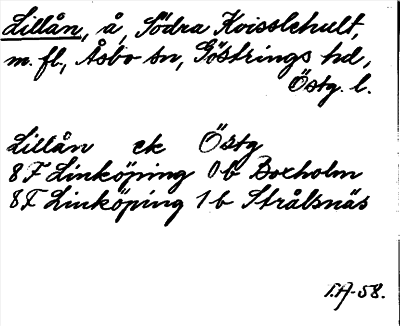 Lillån, å, Södra Koisslehult,
m. fl., Åsbo sn, Göstrings hd,
Östg. l.
Lillån ek Östg
8F Linköping 0b Boxholm
8F Linköping 1b Strålsnäs
I.A-58.